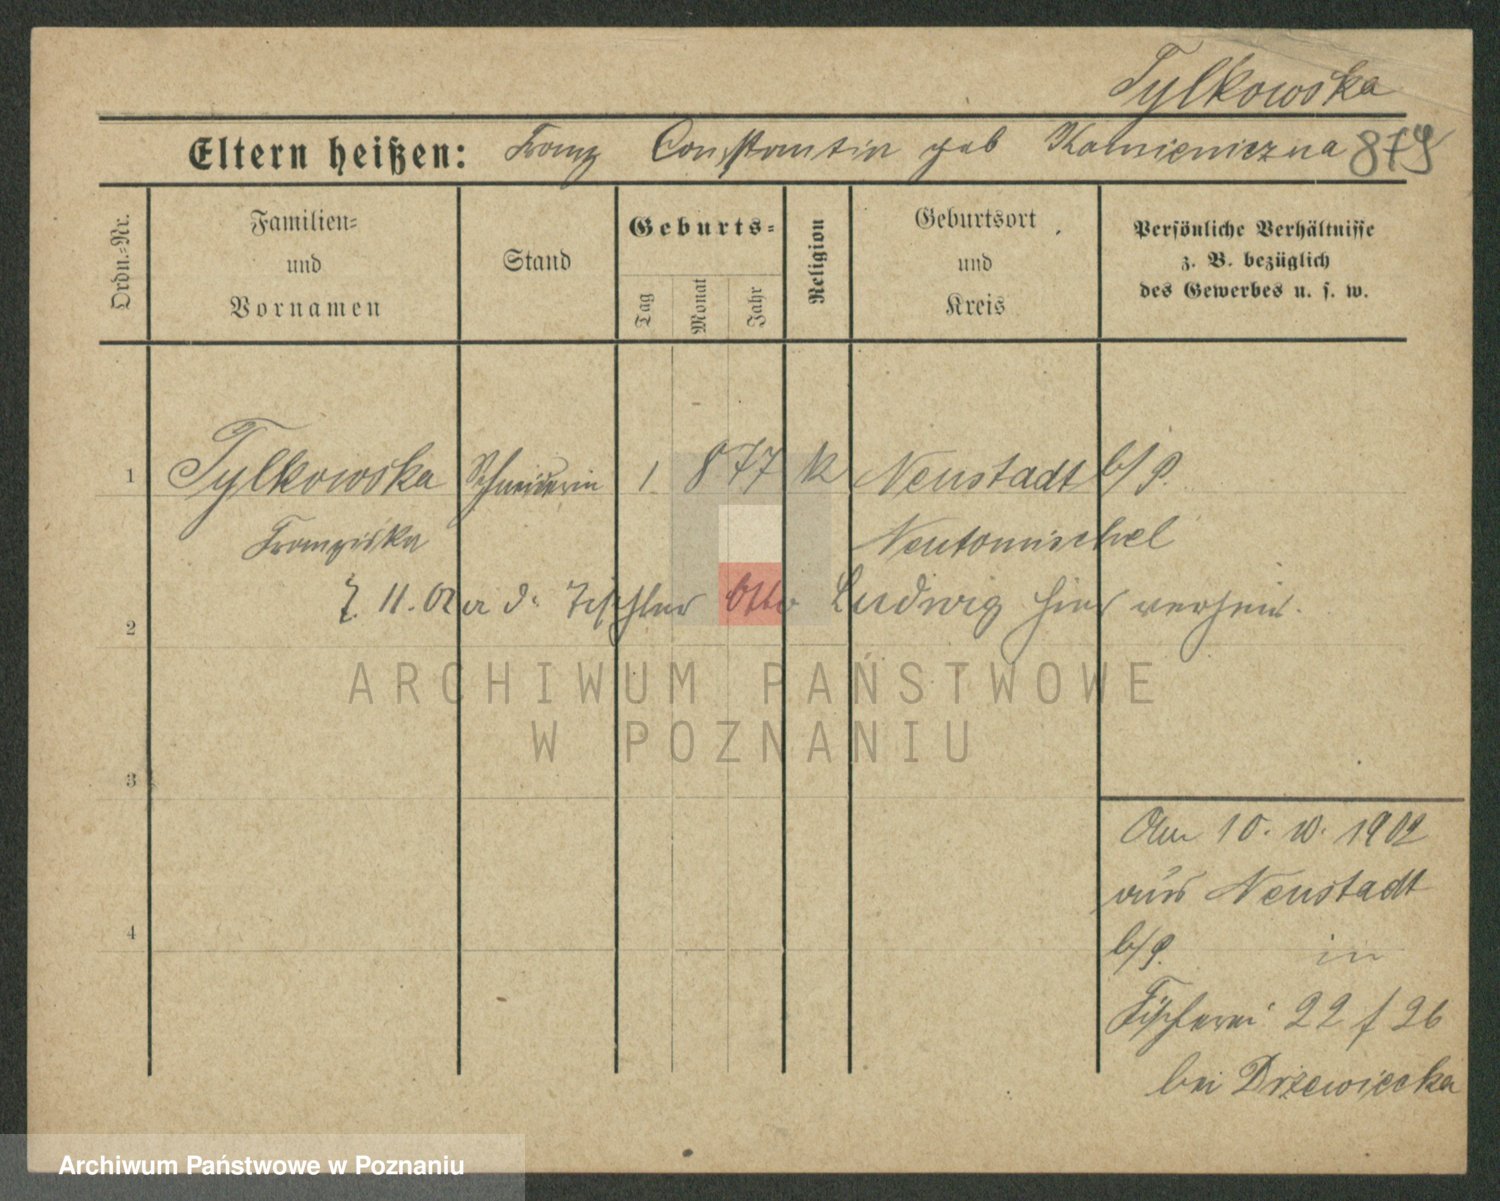 Tylkowska
Eltern heißen: Franz Constantin geb Kamieniczna 879
Ordn.-Nr.
Familien- und Vornamen
Stand
Geburts-
Tag
Monat
Jahr
Religion
Geburtsort und Kreis
Persönliche Verhältnisse z. B. bezüglich des Gewerbes u. s. w.
1 Tylkowska Schneiderin 1. 8 77 k Neustadt b/P.
Franziska Neutomischel
11. 02 Tischler Otto Ludwig hier verheir.
2
ARCHIWUM PAŃSTWOWE
W POZNANIU
3
4
Am 10. 10. 1902
aus Neustadt
b/P. in
Fischerei 22 / 26
bei Drzewiecka
Archiwum Państwowe w Poznaniu